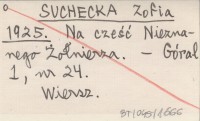 SUCHECKA Zofia
1925. Na cześć Niezna-
nego Żołnierza. - Góral
1, nr 24.
Wiersz.
BT/049/1666